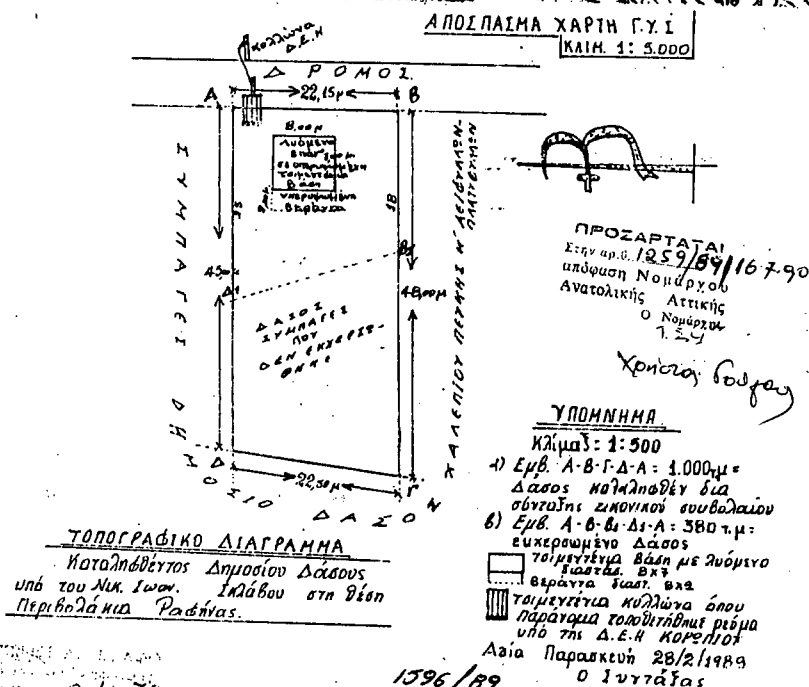 ΑΠΟΣΠΑΣΜΑ ΧΑΡΤΗ Γ.Υ.Σ
ΚΛΙΜ. 1: 5.000
κολλώνα
Δ.Ε.Η
ΔΡΟΜΟΣ
Α
22,15μ
Β
8,00μ
λυόμενο
σε
τσιμεντένια
βάση
βεράντα
ΣΥΜΠΑΓΕΣ ΔΗΜΟΣΙΟ ΔΑΣΟΣ
18
Β1
Δ1
48,00μ
ΔΑΣΟΣ
ΣΥΜΠΑΓΕΣ
ΠΟΥ
ΔΕΝ ΕΚΧΕΡΣΩ-
ΘΗΚΕ
ΧΑΛΕΠΙΟΥ ΠΕΥΚΗΣ Κ' ΑΕΙΦΥΛΛΩΝ-
ΠΛΑΤΥΦΥΛΛΩΝ
Δ
22,50μ
Γ
ΠΡΟΣΑΡΤΑΤΑΙ
Στην αρ.θ. 1259/89/16-7-90
απόφαση Νομάρχου
Ανατολικής Αττικής
Ο Νομάρχης
Χρήστος
ΥΠΟΜΝΗΜΑ
Κλίμαξ: 1:500
α) Εμβ. Α-Β-Γ-Δ-Α = 1.000τμ =
Δάσος καταληφθέν δια
σύνταξης εικονικού συμβολαίου
β) Εμβ. Α-Β-Β1-Δ1-Α = 380 τ.μ =
εκχερσωμένο Δάσος
τσιμεντένια βάση με λυόμενο
διαστάσ. 8x7
βεράντα διαστ. 8x2
τσιμεντένια κολλώνα όπου
παράνομα τοποθετήθηκε ρεύμα
υπό της Δ.Ε.Η ΚΟΡΩΠΙΟΥ
Αγία Παρασκευή 28/2/1989
Ο Συντάξας
ΤΟΠΟΓΡΑΦΙΚΟ ΔΙΑΓΡΑΜΜΑ
Καταληφθέντος Δημοσίου Δάσους
υπό του Νικ. Ιωαν. Σκλάβου στη θέση
Περιβολάκια Ραφήνας.
1596/89